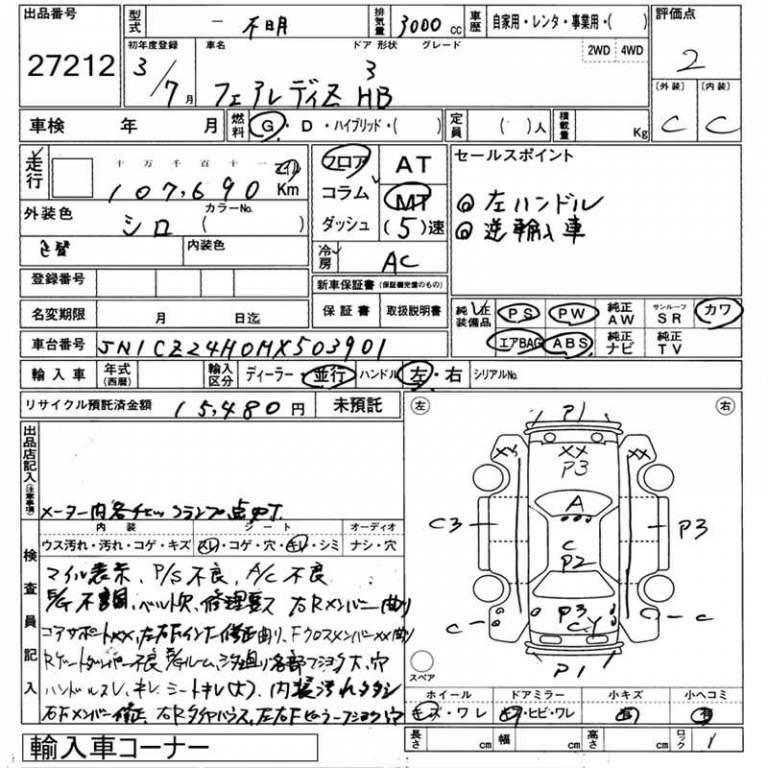 出品番号 型式 － 不明 排気量 3000 cc 車歴 自家用・レンタ・事業用・( ) 評価点
27212 初年度登録 車名 ドア 形状 グレード 2WD 4WD 2
3/7月 フェアレディZ 3 HB
〔外装〕 〔内装〕
C C
車検 年 月 燃料 G・D・ハイブリッド・( ) 定員 ( )人 積載量 Kg
走行 十 万 千 百 十 一 マイル フロア AT セールスポイント
107,690 Km コラム MT @ 左ハンドル
外装色 シロ カラーNo. ( ) ダッシュ (5)速 @ 逆輸入車
色替 内装色 冷房 AC
登録番号 新車保証書 (保証継充當のもの)
名変期限 月 日迄 保証書 取扱説明書 純正装備品 PS PW 純正AW サンルーフSR カワ
車台番号 JN1CZ24H0MX503901 エアBAG ABS 純正ナビ 純正TV
輸入車 年式(西暦) 輸入区分 ディーラー・並行 ハンドル 左・右 シリアルNo.
リサイクル預託済金額 15,480円 未預託 左 右
出品店記入(注意事項)
P1
XX XX XX
P3
A
C3 P3
C
P2
P3
C C
CY
P1
スペア
内装 シート オーディオ
ウス汚れ・汚れ・コゲ・キズ スレ・コゲ・穴・キレ・シミ ナシ・穴
検査員記入
マイル表示、P/S不良、A/C不良
コアサポートXX、左右Fインナー修正曲り、FクロスメンバーXX曲り
ハンドルスレ、キレ、シートキレ(大)、内装汚れ
ホイール ドアミラー 小キズ 小ヘコミ
キズ・ワレ キズ・ヒビ・ワレ 有 有
長さ cm 幅 cm 高さ cm ロック 1
輸入車コーナー